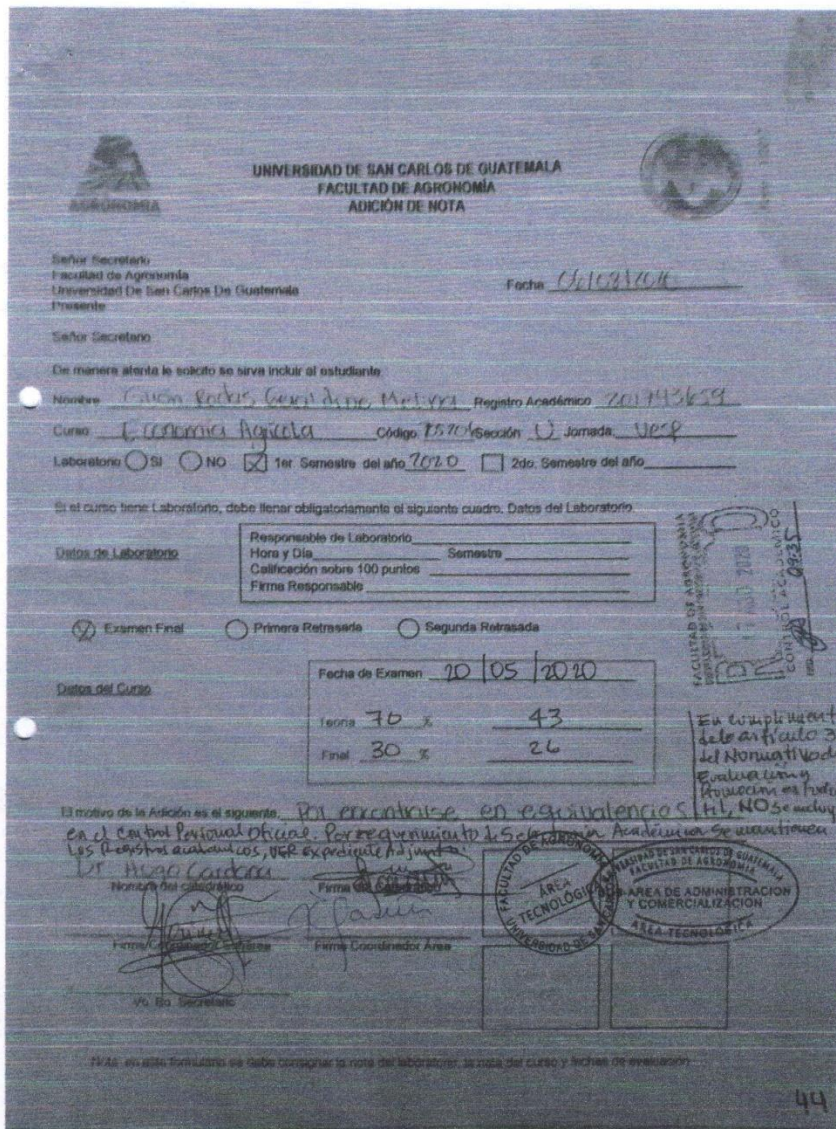 AGRONOMIA
UNIVERSIDAD DE SAN CARLOS DE GUATEMALA
FACULTAD DE AGRONOMÍA
ADICIÓN DE NOTA
Señor Secretario
Facultad de Agronomía
Universidad De San Carlos De Guatemala
Presente
Fecha
Señor Secretario
De manera atenta le solicito se sirva incluir al estudiante
Nombre Rodas Geraldine Melina Registro Académico 201743659
Curso Economia Agricola Código Sección U Jornada Vesp
Laboratorio SI NO 1er Semestre del año 2020 2do. Semestre del año
Si el curso tiene Laboratorio, debe llenar obligatoriamente el siguiente cuadro. Datos del Laboratorio.
Datos de Laboratorio
Responsable de Laboratorio
Hora y Día Semestre
Calificación sobre 100 puntos
Firma Responsable
FACULTAD DE AGRONOMIA
2020
CONTROL ACADEMICO
09:35
Examen Final Primera Retrasada Segunda Retrasada
Datos del Curso
Fecha de Examen 20/05/2020
Teoría 70 % 43
Final 30 % 26
En cumplimient
artículo 3
del Normativo d
Evaluación y
Promoción
NO se incluy
El motivo de la Adición es el siguiente. Por encontrarse en equivalencias
en el Control Personal Oficial. Por requerimiento Académica se mantienen
los Registros académicos, VER expediente Adjunto.
Dr Hugo Cardona
Nombre del catedrático Firma
Firma Coordinador Firma Coordinador Área
Vo. Bo. Secretario
FACULTAD DE AGRONOMIA
ÁREA TECNOLÓGICA
UNIVERSIDAD DE SAN
UNIVERSIDAD DE SAN CARLOS DE GUATEMALA
FACULTAD DE AGRONOMIA
SUB-AREA DE ADMINISTRACION
Y COMERCIALIZACIÓN
AREA TECNOLÓGICA
Nota: en este formulario se debe consignar la nota del laboratorio, la nota del curso y fechas de evaluación
44